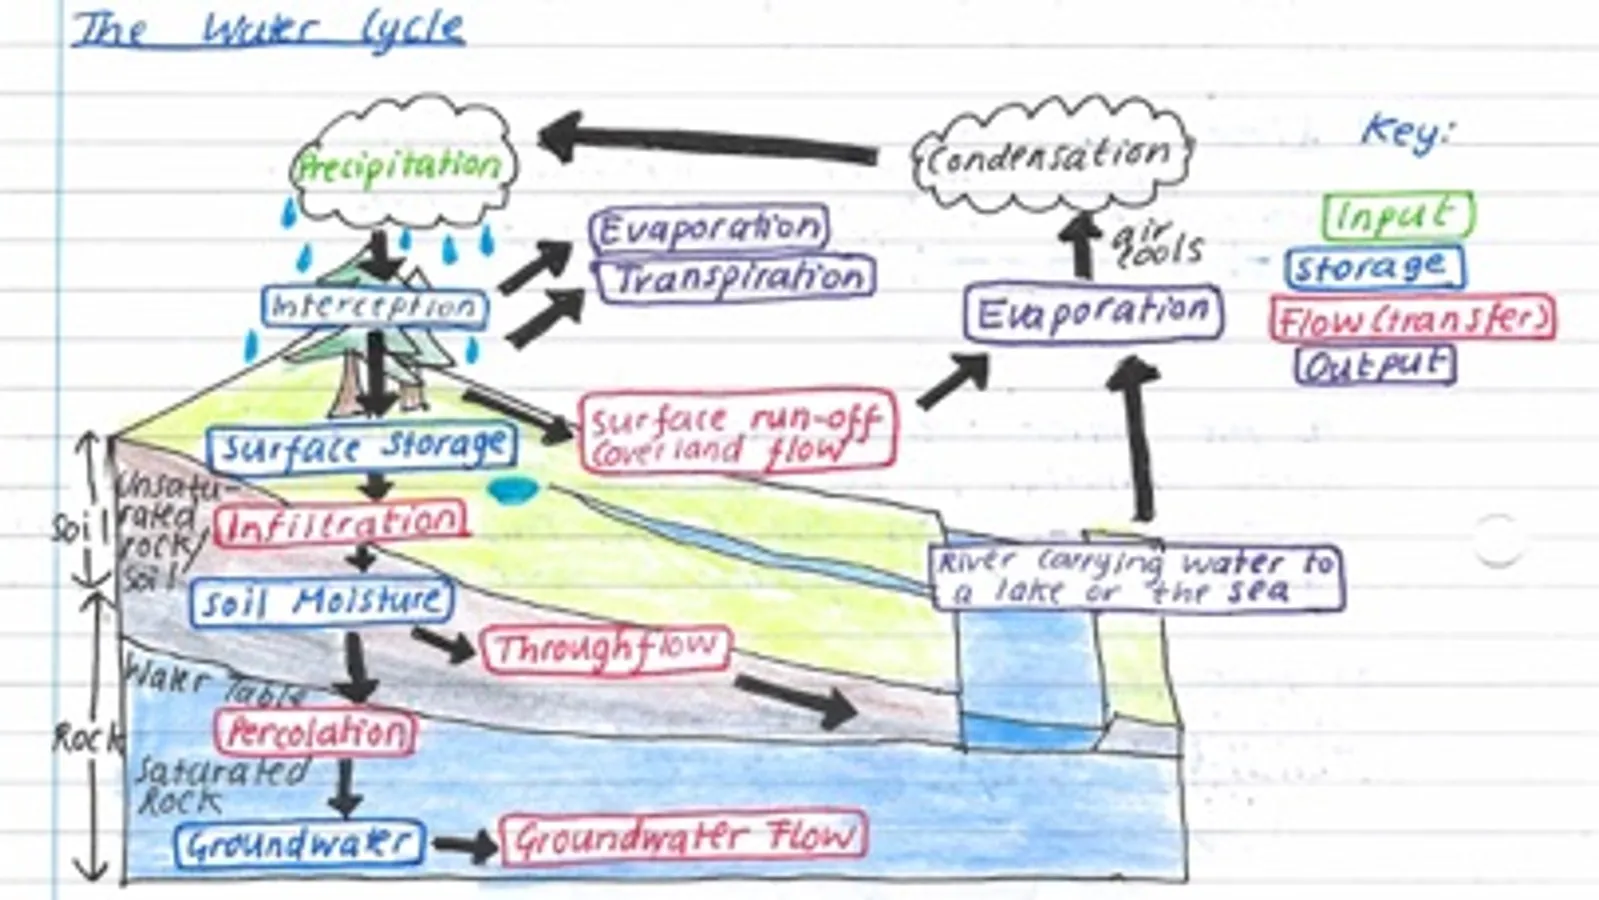 The Water Cycle
Precipitation
Condensation
Key:
Input
Storage
Flow (transfer)
Output
Evaporation
Transpiration
air
cools
Interception
Evaporation
Surface run-off
(overland flow
Surface Storage
Unsatu-
rated
rock/
soil
Soil
Infiltration
River carrying water to
a lake or the sea
Soil Moisture
Throughflow
Water Table
Percolation
Rock
Saturated
Rock
Groundwater
Groundwater Flow